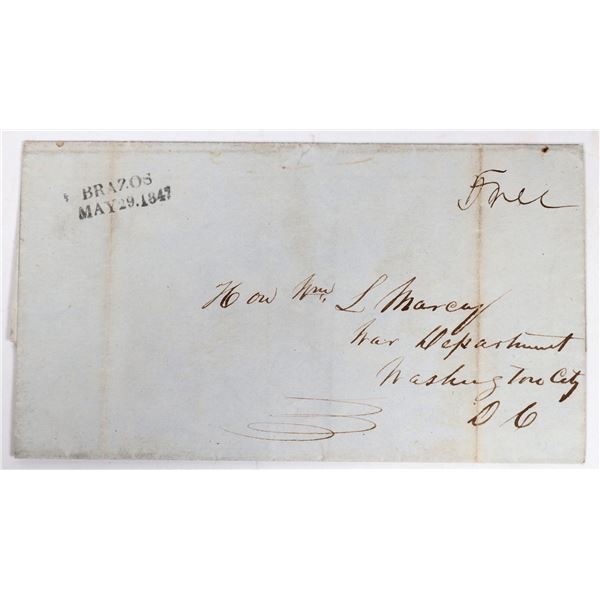 BRAZOS
MAY 29.1847
Free
Hon Wm L Marcy
War Department
Washington City
D C